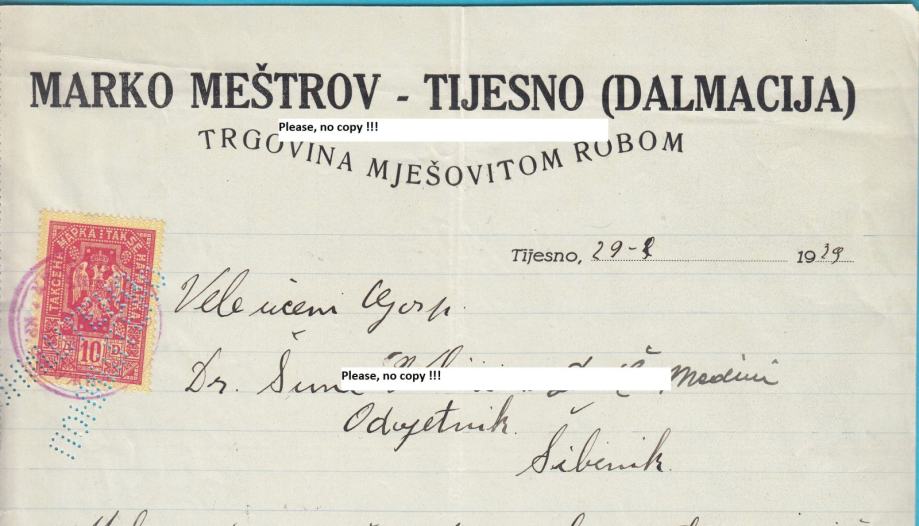 MARKO MEŠTROV - TIJESNO (DALMACIJA)
Please, no copy !!!
TRGOVINA MJEŠOVITOM ROBOM
Tijesno, 29-1 1939
ТАКСЕНА МАРКА ТАКСЕНА МАРКА
10
Veleučeni Gosp.
Dr. Šime
Please, no copy !!!
Medini
Odvjetnik
Šibenik